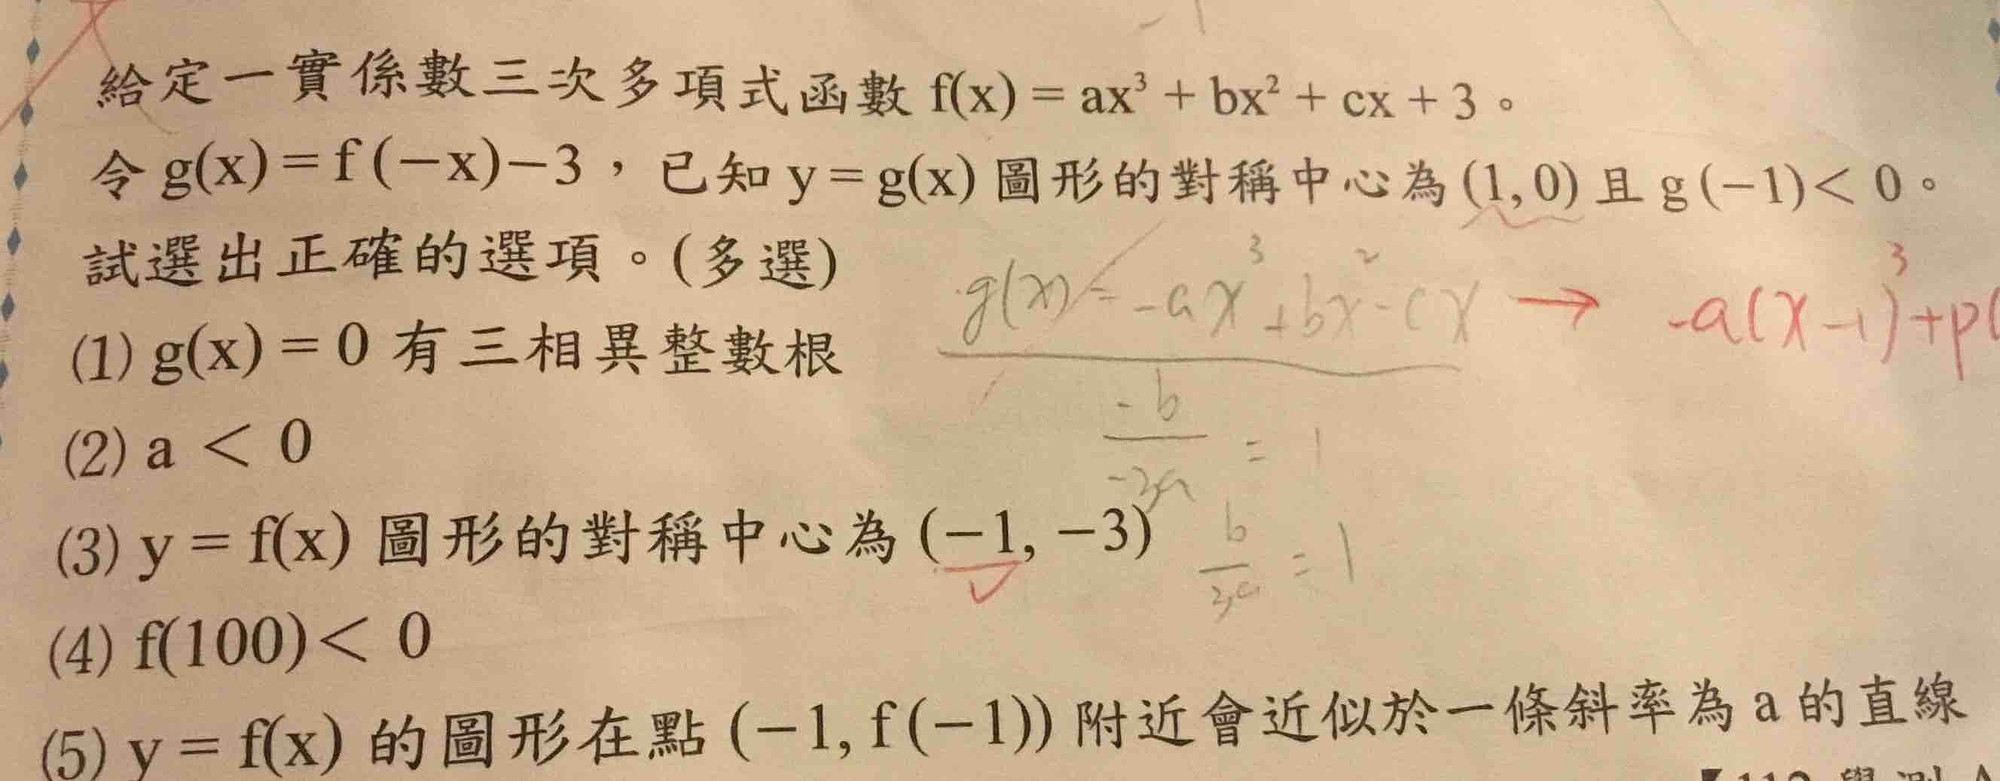 給定一實係數三次多項式函數 f(x) = ax³ + bx² + cx + 3。
令 g(x) = f (−x)−3，已知 y = g(x) 圖形的對稱中心為 (1, 0) 且 g (−1) < 0。
試選出正確的選項。(多選)
g(x) = -ax³ + bx² - cx → -a(x-1)³ + p(
(1) g(x) = 0 有三相異整數根
-b/-3a = 1
(2) a < 0
(3) y = f(x) 圖形的對稱中心為 (−1, −3)
b/3a = 1
(4) f(100) < 0
(5) y = f(x) 的圖形在點 (−1, f (−1)) 附近會近似於一條斜率為 a 的直線